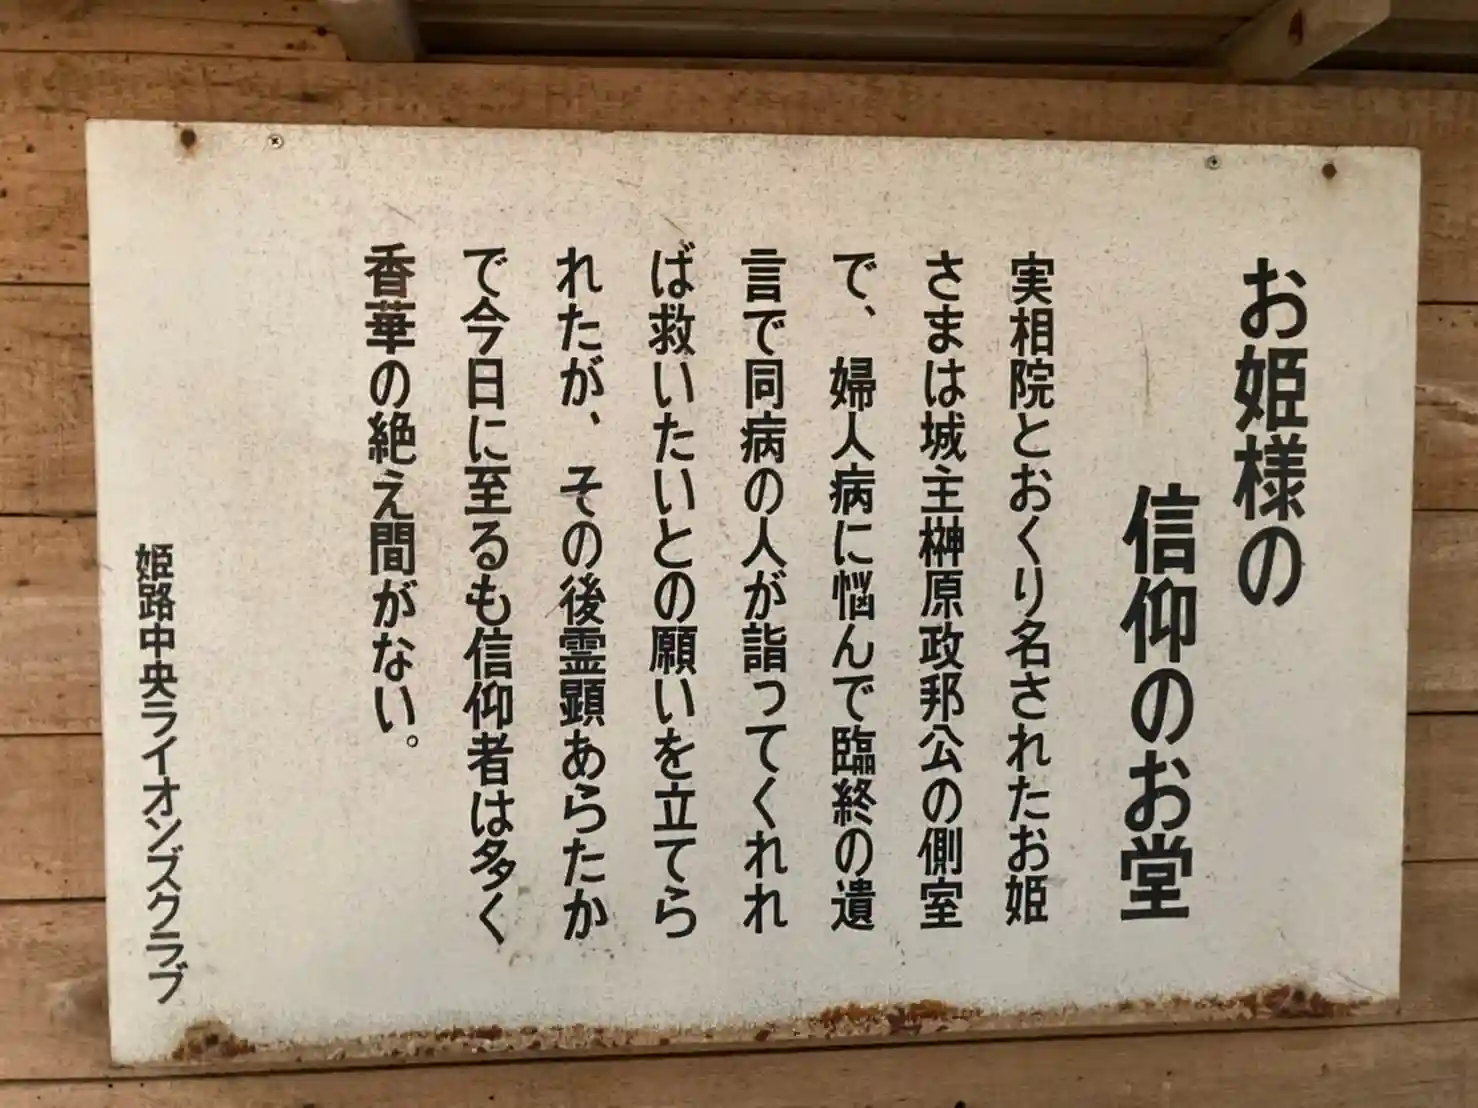 お姫様の
信仰のお堂
実相院とおくり名されたお姫
さまは城主榊原政邦公の側室
で、婦人病に悩んで臨終の遺
言で同病の人が詣ってくれれ
ば救いたいとの願いを立てら
れたが、その後霊顕あらたか
で今日に至るも信仰者は多く
香華の絶え間がない。
姫路中央ライオンズクラブ